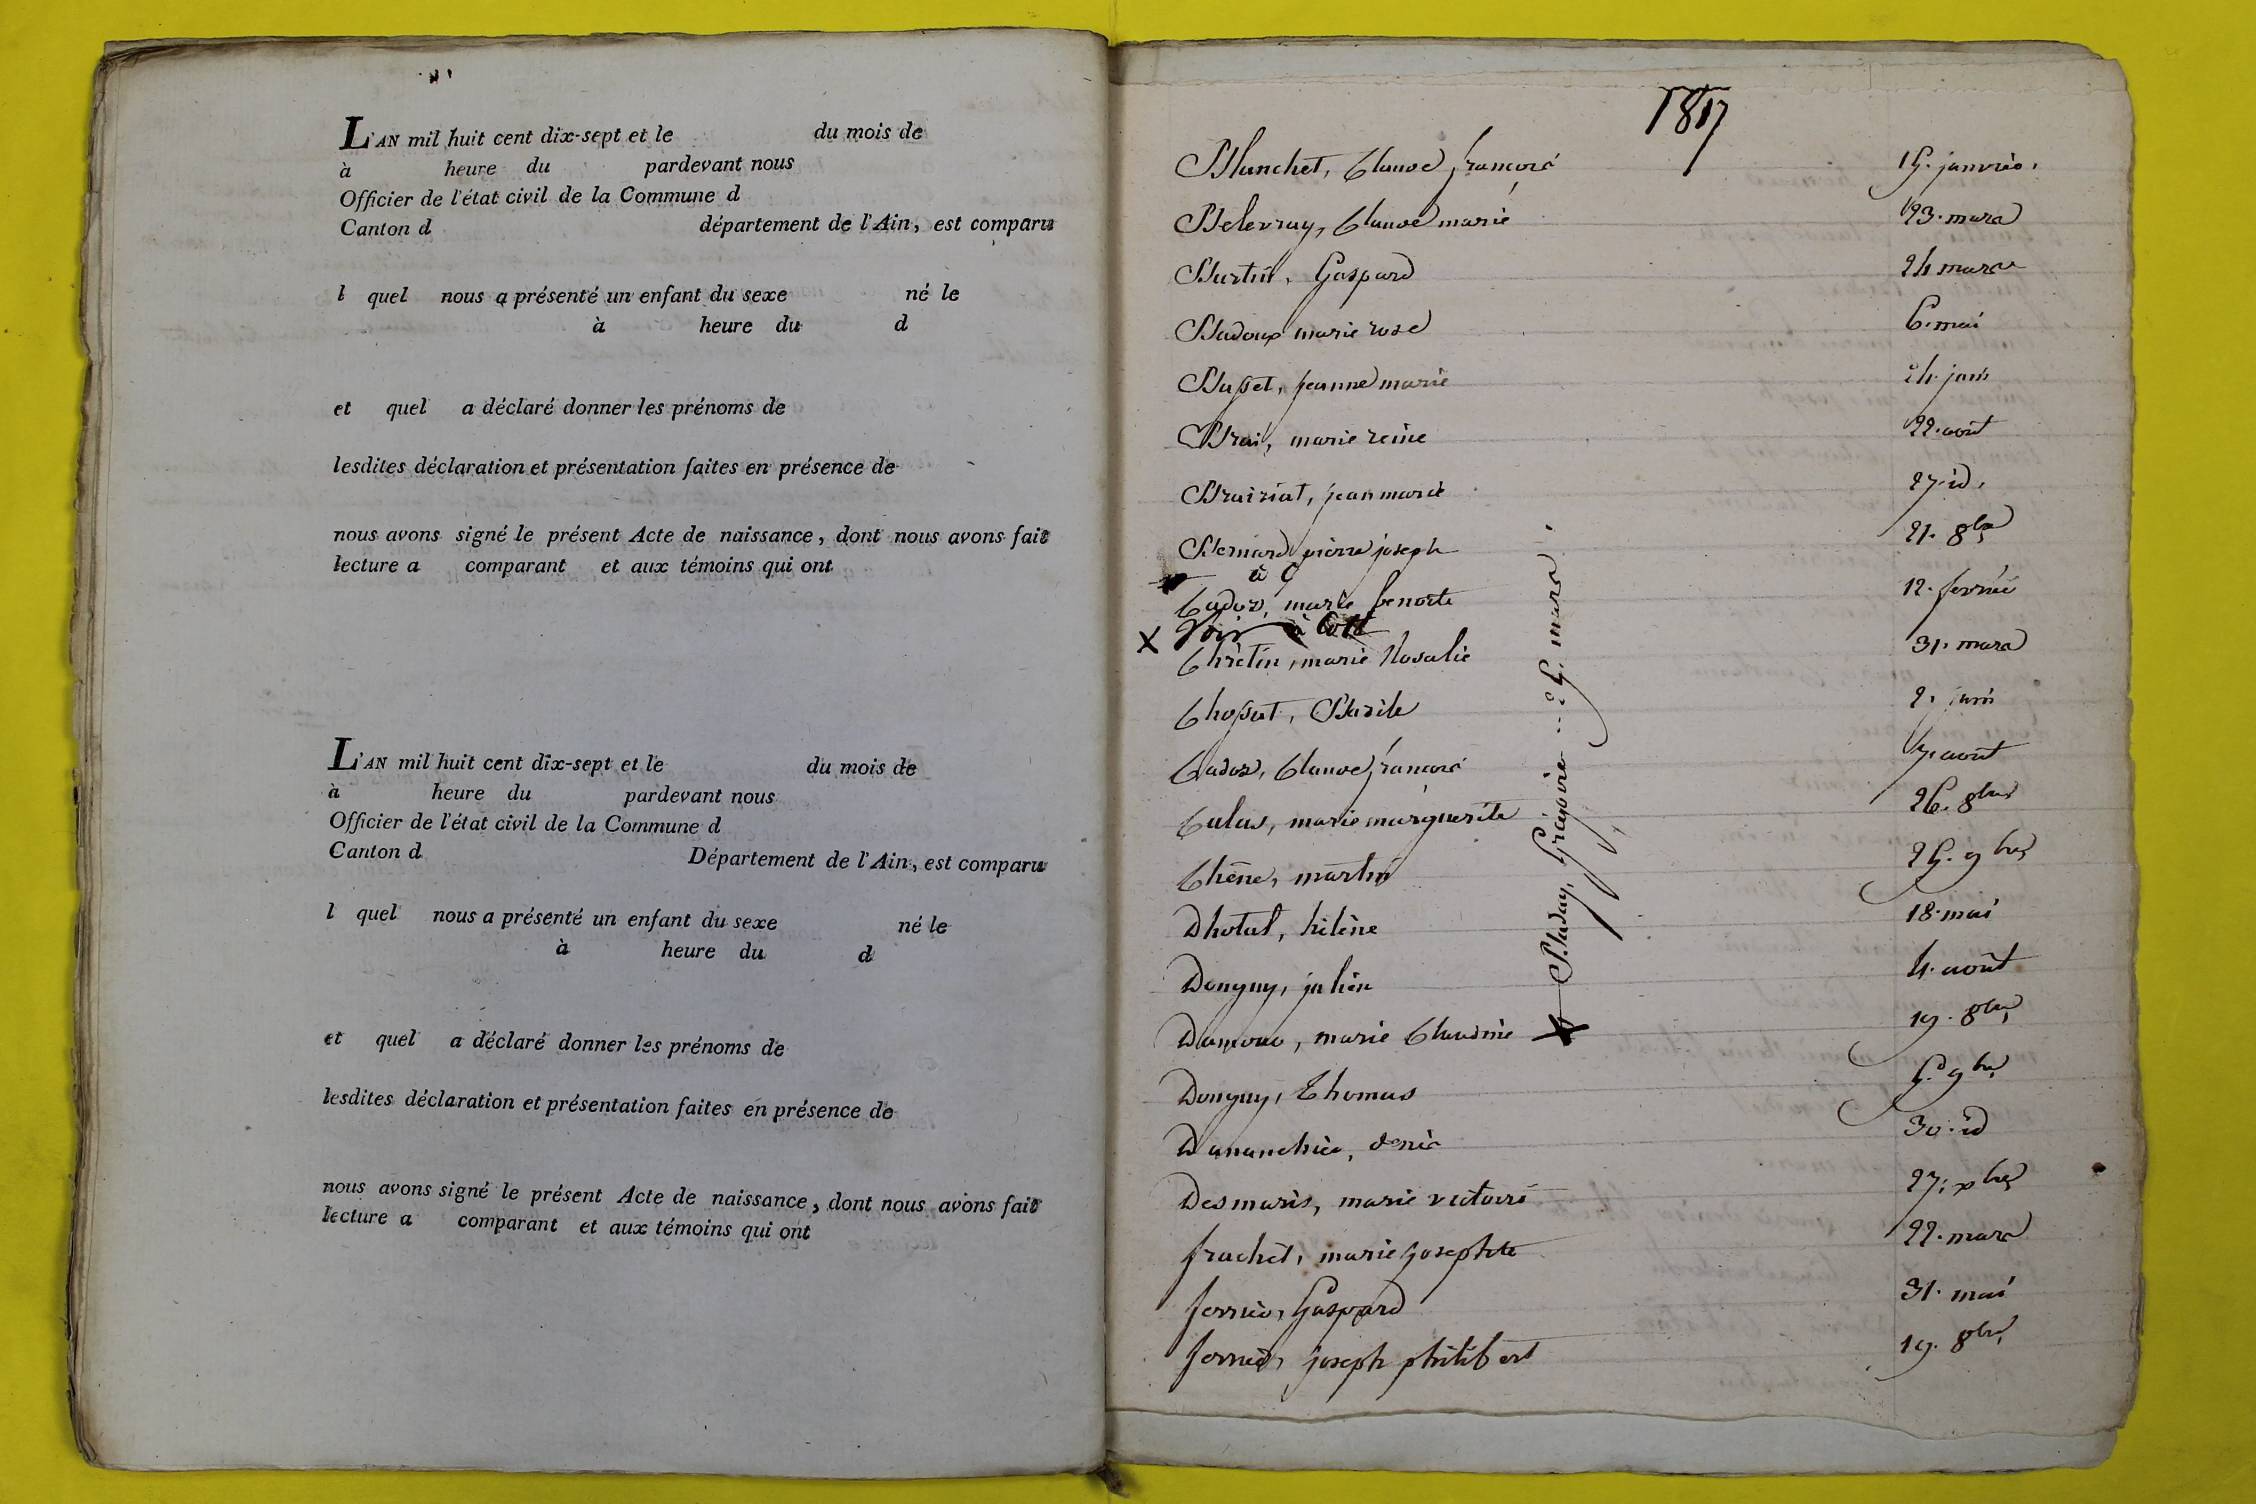 L'AN mil huit cent dix-sept et le du mois de
à heure du pardevant nous
Officier de l'état civil de la Commune d
Canton d département de l'Ain, est comparu
l quel nous a présenté un enfant du sexe né le
à heure du d
et quel a déclaré donner les prénoms de
lesdites déclaration et présentation faites en présence de
nous avons signé le présent Acte de naissance, dont nous avons fait
lecture a comparant et aux témoins qui ont
L'AN mil huit cent dix-sept et le du mois de
à heure du pardevant nous
Officier de l'état civil de la Commune d
Canton d Département de l'Ain, est comparu
l quel nous a présenté un enfant du sexe né le
à heure du d
et quel a déclaré donner les prénoms de
lesdites déclaration et présentation faites en présence de
nous avons signé le présent Acte de naissance, dont nous avons fait
lecture a comparant et aux témoins qui ont
1817
Blanchet, Claude françois 15. janvier.
Belevray, Claude marie 23. mars
Burtin, Gaspard 24 mars
Badoux marie rose 6. mai
Basset, jeanne marie 24. juin
Brai, marie reine 22. août
Brairiat, jean marie 27. id.
Bernard pierre joseph 21. 8bre
à
Cadoz, marie benoite 12. fevrier
X Voir à
Chrétin, marie Rosalie 31. mars
Chossat, Basile 2. juin
Cadoz, Claude françois 7. août
Calas, marie marguerite 26. 8bre
Chêne, martin 25. 9bre
Dhotal, hélène 18. mai
Donguy, julien 4. août
marie Claudine X 19. 8bre
Donguy, Thomas 5. 9bre
Dananchier, denis 30. id
Desmaris, marie victoire 27. xbre
frachet, marie josephte 22. mars
ferrier, Gaspard 31. mai
ferrier, joseph philibert 19. 8bre
Baday, Grégoire ... 25. mars